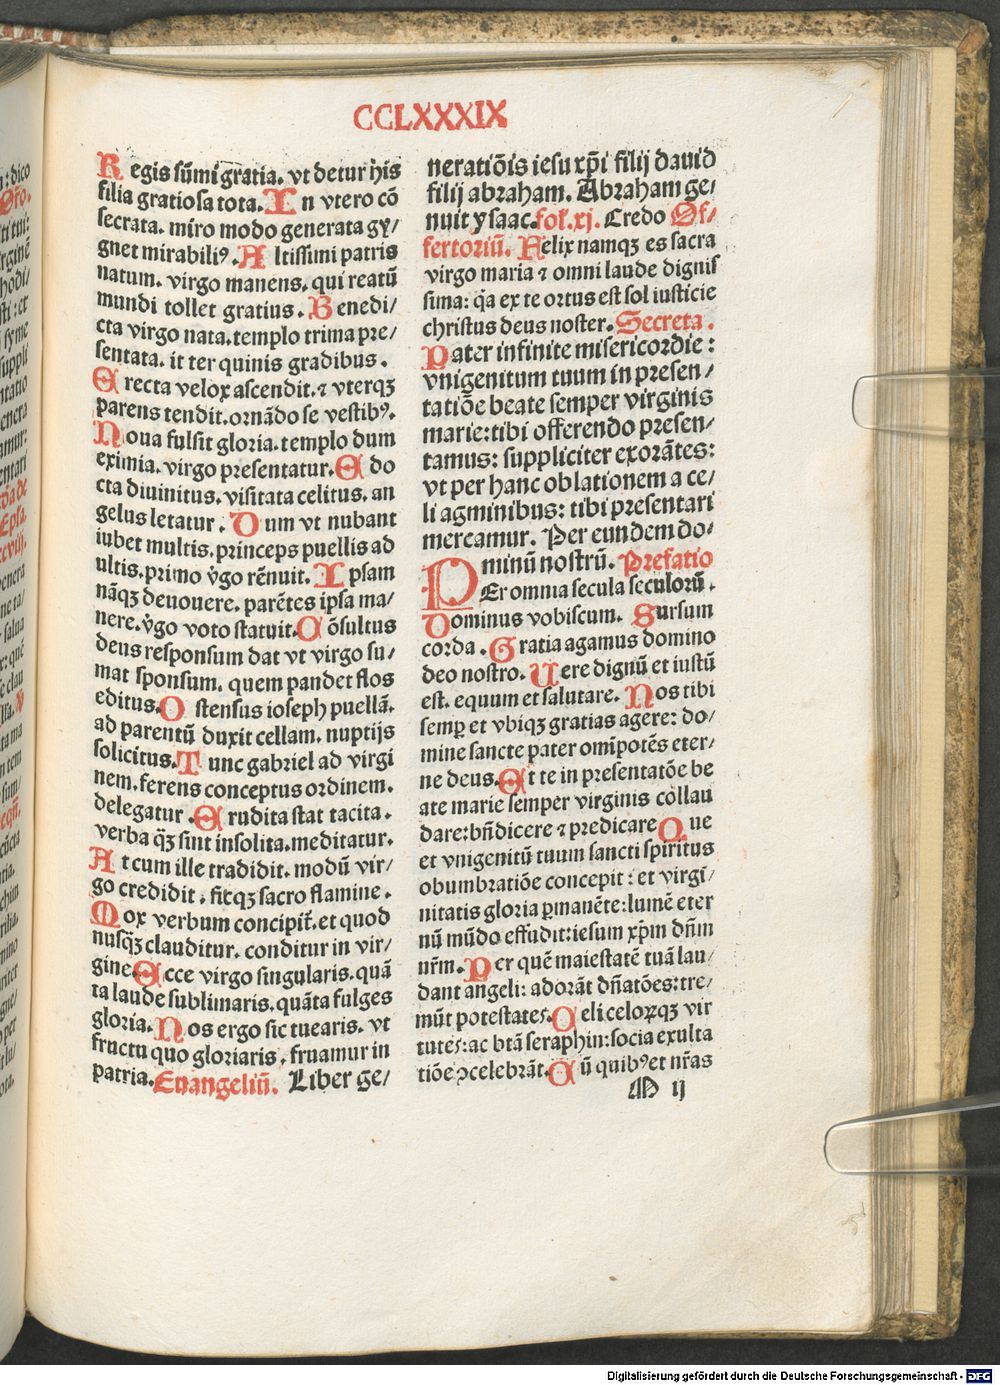 CCLXXXIX
Regis sūmi gratia. vt detur his
filia gratiosa tota. In vtero cō
secrata. miro modo generata gy/
gnet mirabiliꝰ. Altissimi patris
natum. virgo manens. qui reatū
mundi tollet gratius. Benedi/
cta virgo nata. templo trima pre/
sentata. it ter quinis gradibus.
Erecta velox ascendit. ⁊ vterqꝫ
parens tendit. ornādo se vestibꝰ.
Noua fulsit gloria. templo dum
eximia. virgo presentatur. Edo
cta diuinitus. visitata celitus. an
gelus letatur. Dum vt nubant
iubet multis. princeps puellis ad
ultis. primo v̄go rēnuit. Ipsam
nāqꝫ deuouere. parētes ipsa ma/
nere. v̄go voto statuit. Cōsultus
deus responsum dat vt virgo su/
mat sponsum. quem pandet flos
editus. Ostensus ioseph puellā.
ad parentū duxit cellam. nuptijs
solicitus. Tunc gabriel ad virgi
nem. ferens conceptus ordinem.
delegatur. Erudita stat tacita.
verba qꝫ̄ sint insolita. meditatur.
At cum ille tradidit. modū vir/
go credidit. fitqꝫ sacro flamine.
Mox verbum concipit̄. et quod
nusqꝫ̄ clauditur. conditur in vir/
gine. Ecce virgo singularis. quā
ta laude sublimaris. quāta fulges
gloria. Nos ergo sic tuearis. vt
fructu quo gloriaris. fruamur in
patria. Euangeliū. Liber ge/
neratiōis iesu xp̄i filij dauid
filij abraham. Abraham ge/
nuit ysaac. fol. xj. Credo Of/
fertoriū. Felix namqꝫ es sacra
virgo maria ⁊ omni laude dignis
sima: q̄a ex te ortus est sol iusticie
christus deus noster. Secreta.
Pater infinite misericordie:
vnigenitum tuum in presen/
tatiōe beate semper virginis
marie: tibi offerendo presen/
tamus: suppliciter exorātes:
vt per hanc oblationem a ce/
li agminibus: tibi presentari
mereamur. Per eundem do/
minū nostrū. Prefatio
PEr omnia secula seculorū.
Dominus vobiscum. Sursum
corda. Gratia agamus domino
deo nostro. Uere dignū et iustū
est. equum et salutare. Nos tibi
semꝑ et vbiqꝫ gratias agere: do/
mine sancte pater omīpotēs eter/
ne deus. Et te in presentatōe be
ate marie semper virginis collau
dare: bn̄dicere ⁊ predicare Que
et vnigenitū tuum sancti spiritus
obumbratiōe concepit: et virgi/
nitatis gloria ꝑmanēte: lumē eter
nū mūdo effudit: iesum xp̄m dn̄m
nr̄m. Per quē maiestatē tuā lau/
dant angeli: adorāt dn̄atōes: tre/
mūt potestates. Celi celoꝝqꝫ vir
tutes: ac btā seraphin: socia exulta
tiōe ↄcelebrāt. Cū quibꝰ et nr̄as
M ij
Digitalisierung gefördert durch die Deutsche Forschungsgemeinschaft - DFG